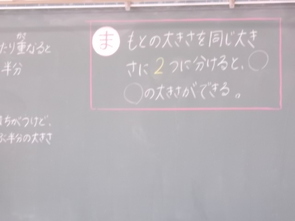 たり重なると
半分
ちがうけど、
ぶ半分の大きさ
ま
もとの大きさを同じ大き
さに2つに分けると、〇
〇の大きさができる。